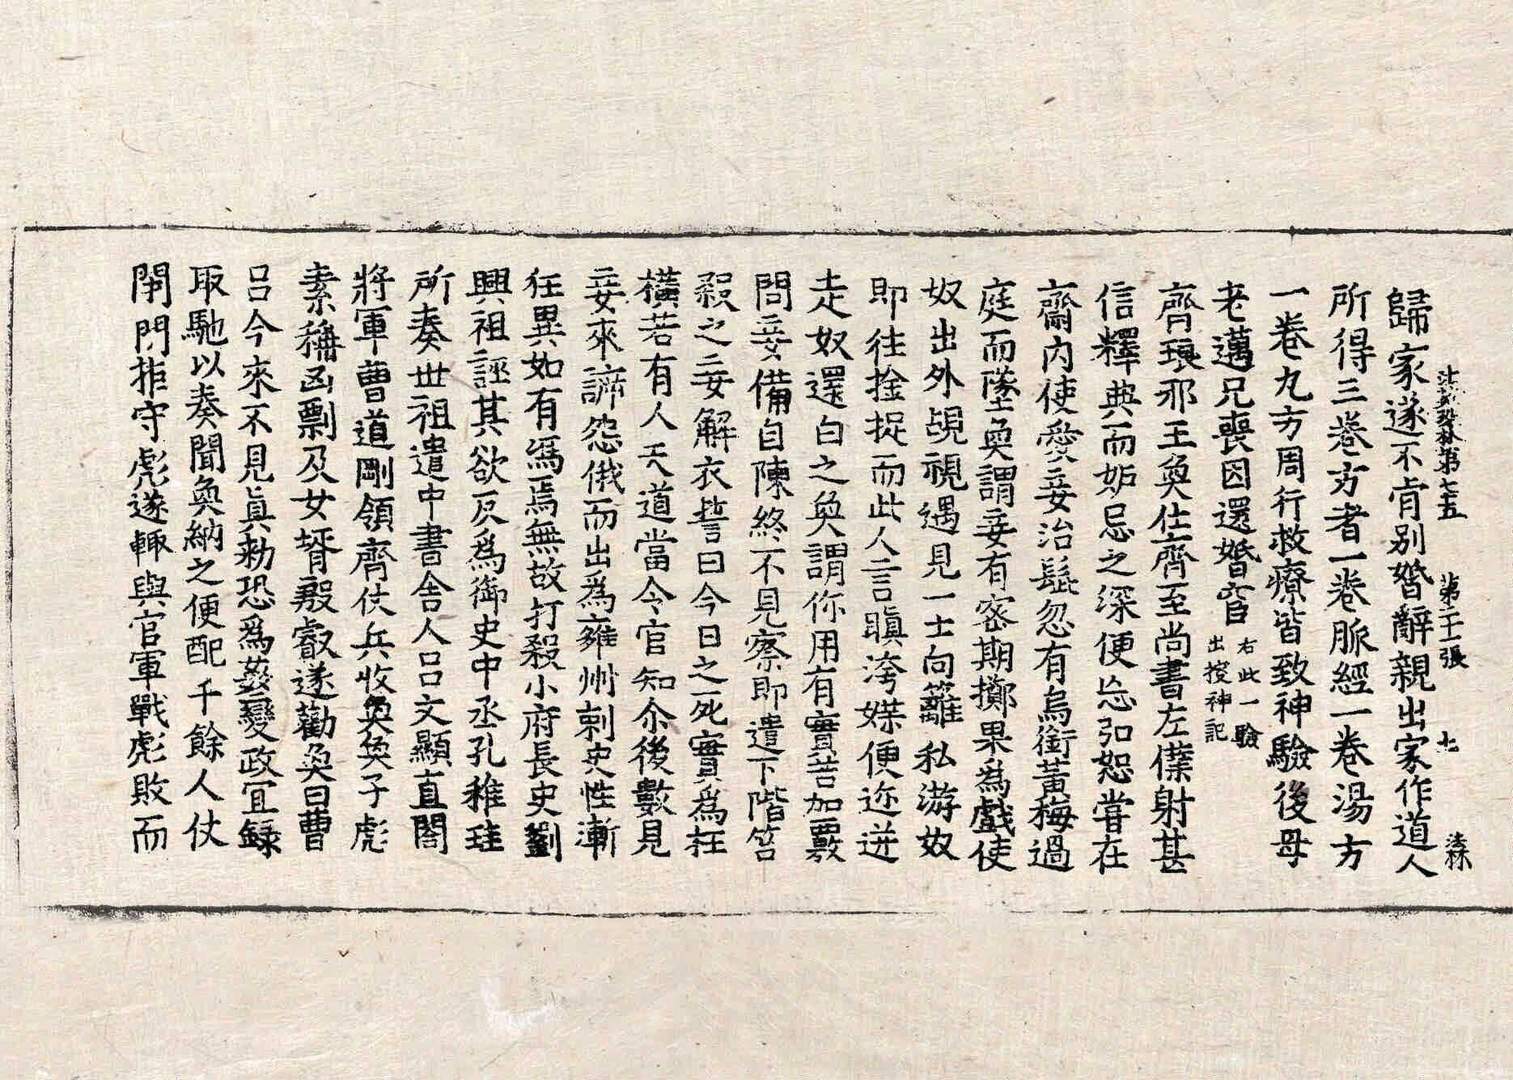 歸家遂不肯別婚辭親出家作道人
法苑珠林第七十五 第二十一張 七 法林
所得三卷方者一卷脉經一卷湯方
一卷九方周行救療皆致神驗後母
老邁兄喪因還婚宦 右此一驗
出搜神記
齊琅邪王奐仕齊至尚書左僕射甚
信釋典而妬忌之深便忘弘恕嘗在
齋内使愛妾治髭忽有烏銜黃梅過
庭而墜奐謂妾有密期擲果爲戲使
奴出外覘視遇見一士向籬私游奴
即往捦捉而此人言瞋涝媟便迩迸
走奴還白之奐謂你用有實苦加覈
問妾備自陳終不見察即遣下階笞
殺之妾解衣誓曰今日之死實爲枉
橫若有人天道當令官知尒後數見
妾來訴怨俄而出爲雍州刺史性漸
狂異如有憑焉無故打殺小府長史劉
興祖誣其欲反爲御史中丞孔稚珪
所奏世祖遣中書舍人呂文顯直閤
將軍曹道剛領齊仗兵收奐奐子彪
素稱凶剽及女壻殷叡遂勸奐曰曹
呂今來不見真勑恐爲姦變政宜錄
取馳以奏聞奐納之便配千餘人仗
閇門拒守彪遂輒與官軍戰彪敗而